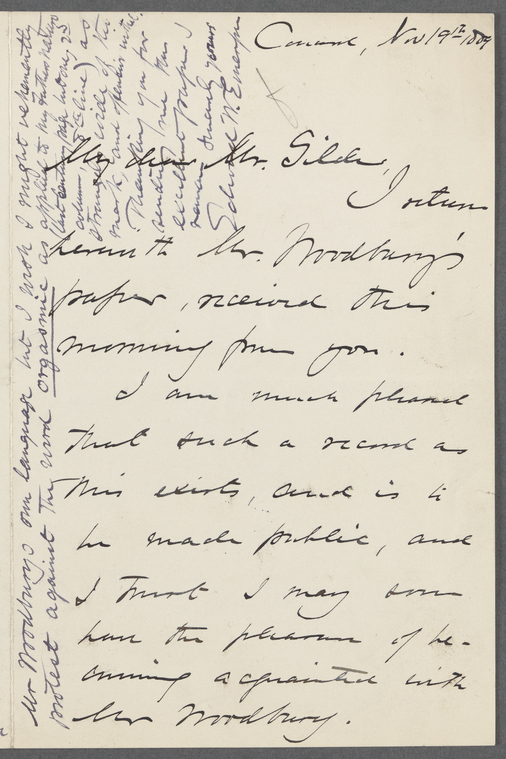 Concord, Nov 19th 1889
My dear Mr. Gilder,
I return
herewith Mr. Woodbury's
paper, received this
morning from you.
I am much pleased
that such a record as
this exists, and is to
be made public, and
I trust I may soon
have the pleasure of be-
coming acquainted with
Mr Woodbury.
Mr Woodbury's own language but I wish I might vehemently
protest against the word orgasmic as
applied to my father's nature
column,
as
wide of the
mark, and offensive
Thanking you for
sending me this
excellent paper I
remain, sincerely yours
Edward W. Emerson